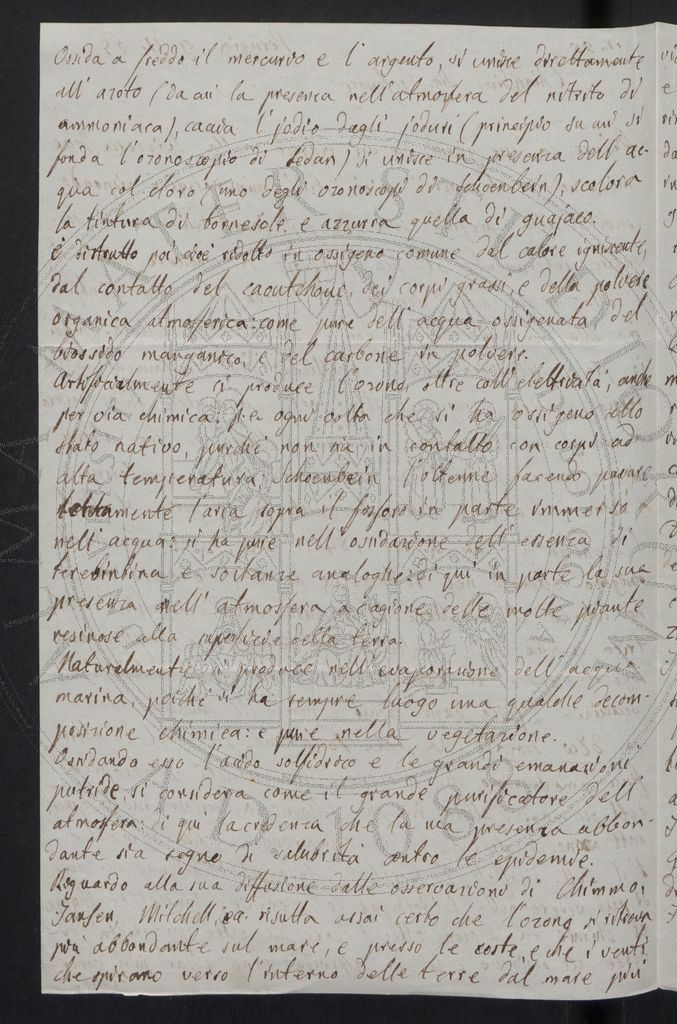 Ossida a freddo il mercurio e l'argento, si unisce direttamente
all'azoto (da cui la presenza nell'atmosfera del nitrito di
ammoniaca), caccia l'jodio dagli joduri (principio su cui si
fonda l'ozonoscopio di Sedan) si unisce in presenza dell'ac-
qua col cloro (uno degli ozonoscopii di Schoenbein), scolora
la tintura di tornesole, e azzurra quella di guajaco.
É distrutto poi, cioè ridotto in ossigeno comune dal calore igniscente,
dal contatto del caoutchouc, dei corpi grassi e della polvere
organica atmosferica: come pure dell'acqua ossigenata del
biossido manganico, e del carbone in polvere.
Artificialmente si produce l'ozono, oltre coll'elettricità, anche
per via chimica: ogni volta che si ha ossigeno allo
stato nativo, purchè non sia in contatto con corpi ad
alta temperatura. Schoenbein l'ottenne facendo passare
lentamente l'aria sopra il fosforo in parte immerso
nell'acqua: si ha pure nell'ossidazione dell'essenza di
terebinbina e sostanze analoghe: di qui in parte la sua
presenza nell'atmosfera a cagione delle molte piante
resinose alla superficie della terra.
Naturalmente si produce nell'evaporazione dell'acqua
marina, poichè vi ha sempre luogo una qualche decom-
posizione chimica: e pure nella vegetazione.
Ossidando esso l'acido solfidrico e le grandi emanazioni
putride, si considera come il grande purificatore dell'
atmosfera: di qui la credenza che la sua presenza abbon-
dante sia segno di salubrità contro le epidemie.
Riguardo alla sua diffusione dalle osservazioni di Chimmo,
Jansen, Mitchell, ea. risulta assai certo che l'ozono si ritrova
più abbondante sul mare, e presso le coste, e che i venti
che spirano verso l'interno delle terre dal mare più